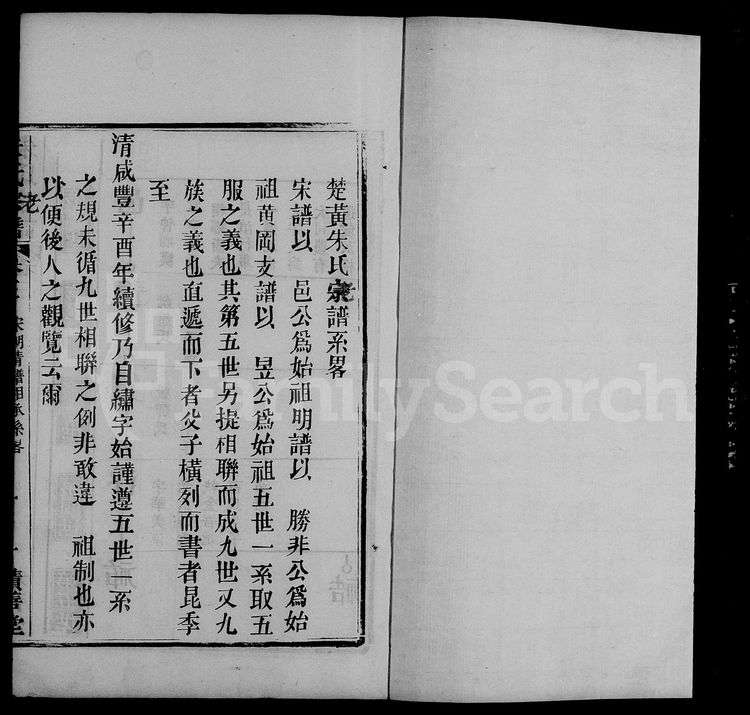 楚黃朱氏宗譜系畧
宋譜以 邑公爲始祖明譜以 勝非公爲始
祖黃岡支譜以 昱公爲始祖五世一系取五
服之義也其第五世另提相聯而成九世又九
族之義也直遞而下者父子橫列而書者昆季
至
清咸豐辛酉年續修乃自繡字始謹遵五世一系
之規未循九世相聯之例非敢違 祖制也亦
以便後人之觀覽云爾
積善堂
FamilySearch